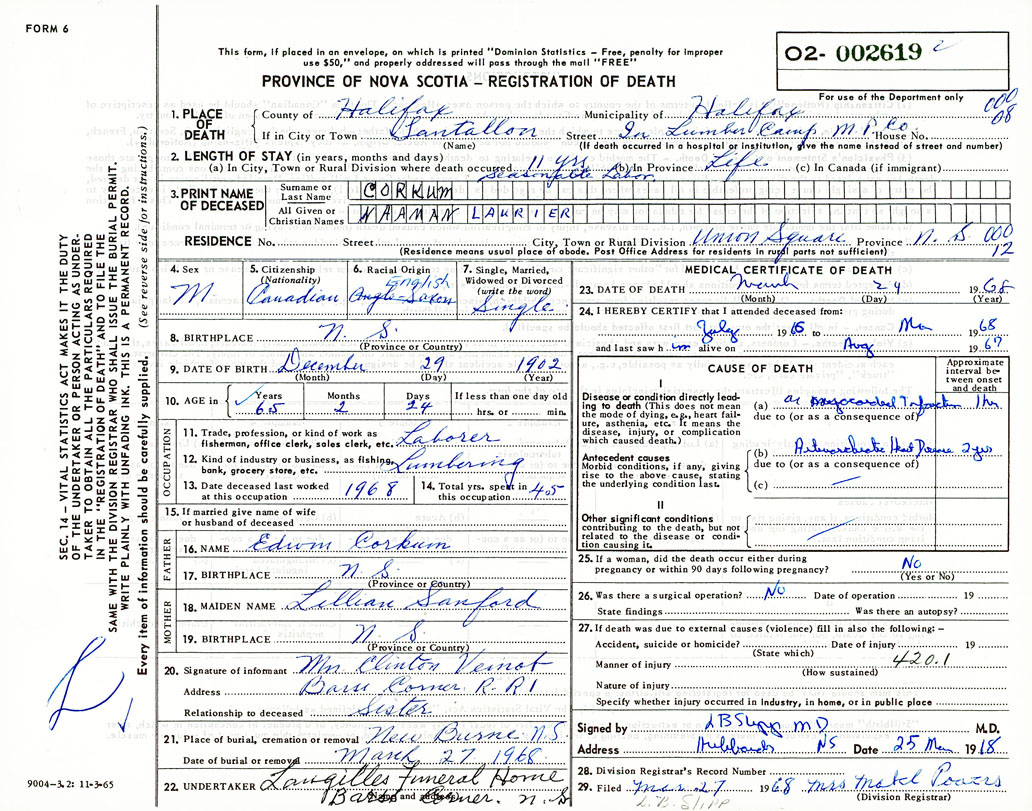 FORM 6
This form, if placed in an envelope, on which is printed "Dominion Statistics – Free, penalty for improper
use $50," and properly addressed will pass through the mail "FREE"
O2- 002619
PROVINCE OF NOVA SCOTIA – REGISTRATION OF DEATH
For use of the Department only
000
08
1. PLACE OF DEATH
County of Halifax Municipality of Halifax
If in City or Town Santallon Street In Lumber Camp M.P. Co. House No.
(Name) (If death occurred in a hospital or institution, give the name instead of street and number)
2. LENGTH OF STAY (in years, months and days)
(a) In City, Town or Rural Division where death occurred 11 yrs (b) In Province Life (c) In Canada (if immigrant)
Seasonable Labor
3. PRINT NAME OF DECEASED
Surname or Last Name CORKUM
All Given or Christian Names NAAMAN LAURIER
RESIDENCE No. Street City, Town or Rural Division Union Square Province N. S. 000
12
(Residence means usual place of abode. Post Office Address for residents in rural parts not sufficient)
4. Sex
M.
5. Citizenship
(Nationality)
Canadian
6. Racial Origin
English
Anglo-Saxon
7. Single, Married,
Widowed or Divorced
(write the word)
Single
8. BIRTHPLACE N. S.
(Province or Country)
9. DATE OF BIRTH December 29 1902
(Month) (Day) (Year)
10. AGE in Years Months Days If less than one day old
65 2 24 hrs. or min.
OCCUPATION
11. Trade, profession, or kind of work as
fisherman, office clerk, sales clerk, etc. Laborer
12. Kind of industry or business, as fishing,
bank, grocery store, etc. Lumbering
13. Date deceased last worked
at this occupation 1968
14. Total yrs. spent in
this occupation 45
15. If married give name of wife
or husband of deceased
FATHER
16. NAME Edwin Corkum
17. BIRTHPLACE N. S.
(Province or Country)
MOTHER
18. MAIDEN NAME Lillian Sanford
19. BIRTHPLACE N. S.
(Province or Country)
20. Signature of informant Mrs. Clinton Veinot
Address Barss Corner R.R 1
Relationship to deceased Sister
21. Place of burial, cremation or removal New Burne N.S.
Date of burial or removal March 27 1968
22. UNDERTAKER Langilles Funeral Home
Barss Corner. N.S
MEDICAL CERTIFICATE OF DEATH
23. DATE OF DEATH March 24 1968
(Month) (Day) (Year)
24. I HEREBY CERTIFY that I attended deceased from:
July 19 to Mar 1968
and last saw him alive on Aug 1967
CAUSE OF DEATH
Approximate
interval be-
tween onset
and death
I
Disease or condition directly lead-
ing to death (This does not mean
the mode of dying, e.g., heart fail-
ure, asthenia, etc. It means the
disease, injury, or complication
which caused death.)
(a) ac myocardial Infarction 1 hr
due to (or as a consequence of)
Antecedent causes
Morbid conditions, if any, giving
rise to the above cause, stating
the underlying condition last.
(b) Heart Disease 2 yrs
due to (or as a consequence of)
(c) —
II
Other significant conditions
contributing to the death, but not
related to the disease or condi-
tion causing it.
25. If a woman, did the death occur either during
pregnancy or within 90 days following pregnancy? No
(Yes or No)
26. Was there a surgical operation? No Date of operation 19
State findings Was there an autopsy?
27. If death was due to external causes (violence) fill in also the following: –
Accident, suicide or homicide? Date of injury 19
(State which)
Manner of injury 420.1
(How sustained)
Nature of injury
Specify whether injury occurred in industry, in home, or in public place
Signed by L B Slipp M D M.D.
Address Hubbards NS Date 25 Mar 1968
28. Division Registrar's Record Number
29. Filed Mar 27 1968 Mrs Mabel Powers
(Division Registrar)
L. B. SLIPP
SEC. 14 – VITAL STATISTICS ACT MAKES IT THE DUTY
OF THE UNDERTAKER OR PERSON ACTING AS UNDER-
TAKER TO OBTAIN ALL THE PARTICULARS REQUIRED
IN THE "REGISTRATION OF DEATH" AND TO FILE THE
SAME WITH THE DIVISION REGISTRAR WHO SHALL ISSUE THE BURIAL PERMIT.
WRITE PLAINLY WITH UNFADING INK. THIS IS A PERMANENT RECORD.
Every item of information should be carefully supplied. (See reverse side for instructions.)
9004-3.2: 11-3-65